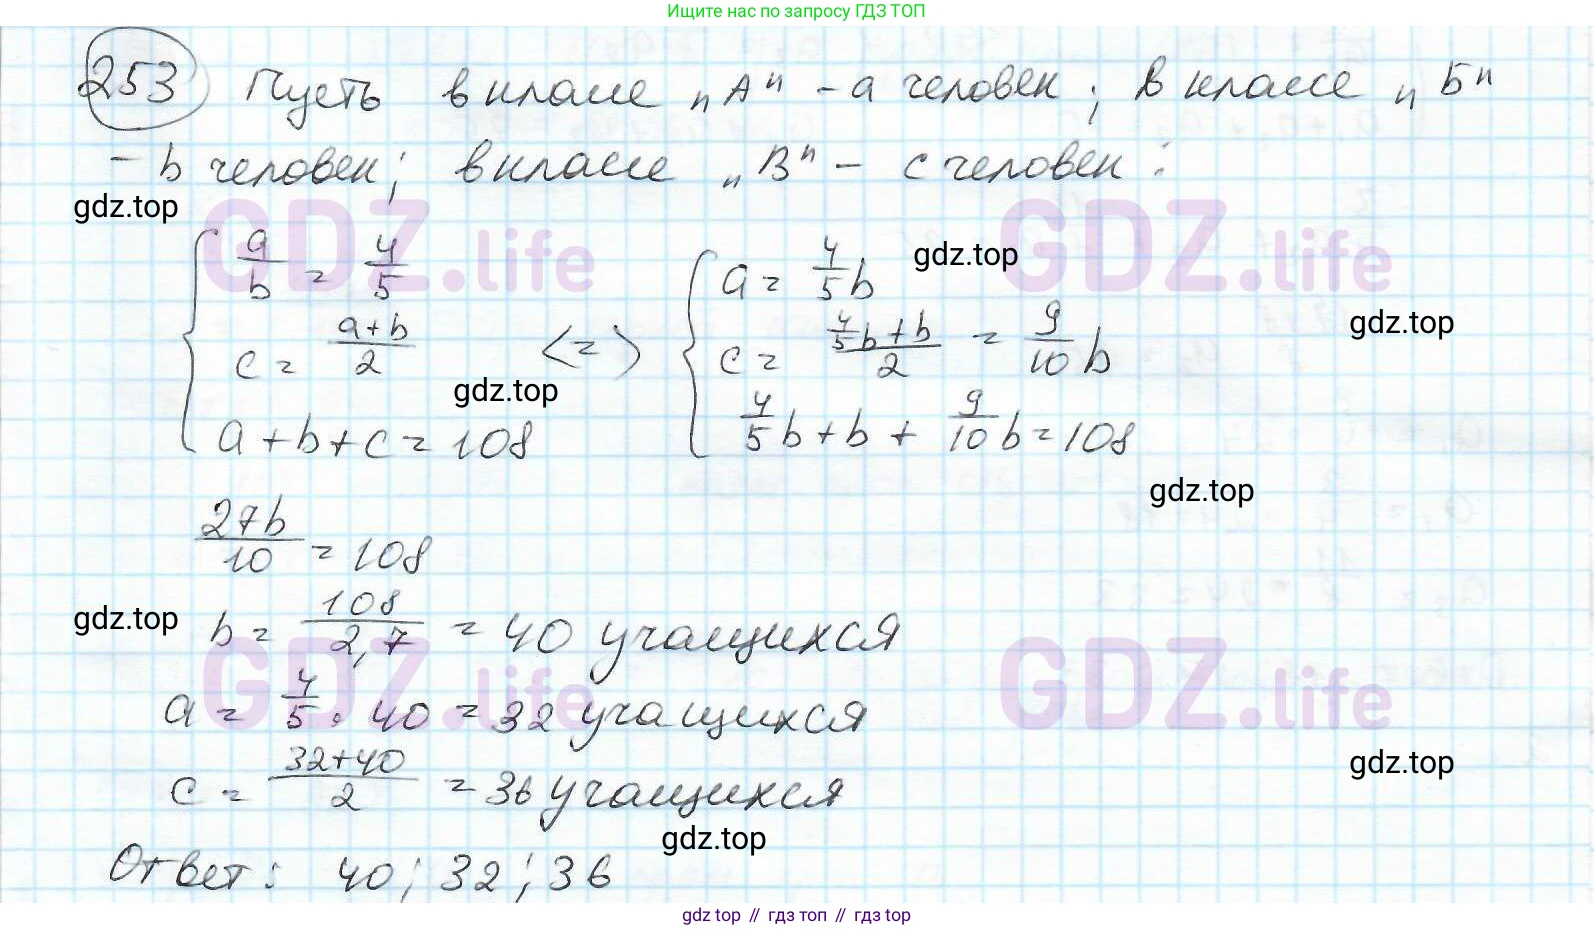 Ищите нас по запросу ГДЗ ТОП
253 Пусть в классе "А" - a человек; в классе "Б"
- b человек; в классе "В" - c человек:
gdz.top
GDZ.life GDZ.life
{ a/b = 4/5
c = (a+b)/2
a+b+c=108
<=>
{ a = 4/5 b
c = (4/5 b + b)/2 = 9/10 b
4/5 b + b + 9/10 b = 108
gdz.top
gdz.top
gdz.top
gdz.top
27b/10 = 108
gdz.top
b = 108/2,7 = 40 учащихся
GDZ.life GDZ.life
a = 4/5 · 40 = 32 учащихся
c = (32+40)/2 = 36 учащихся
gdz.top
gdz.top
Ответ: 40; 32; 36
gdz top // гдз топ // gdz top